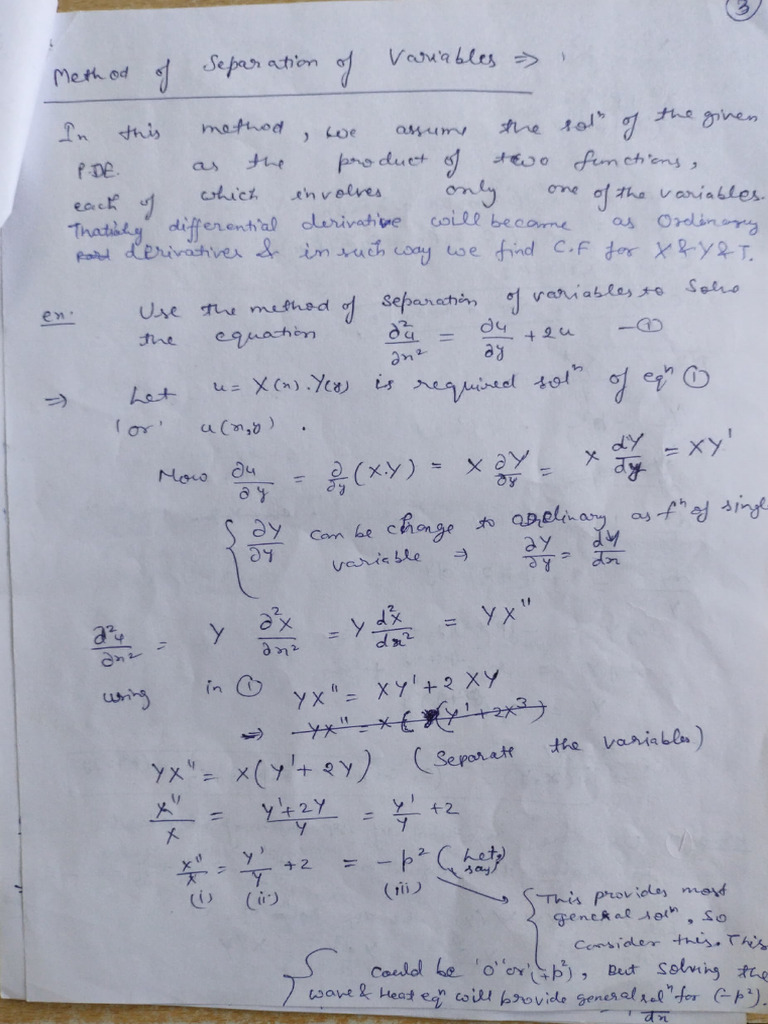 3
Method of Separation of Variables ⇒
In this method, we assume the solⁿ of the given
P.D.E. as the product of two functions,
each of which involves only one of the variables.
differential derivative will become as Ordinary
derivatives & in such way we find C.F for X & Y & T.
ex: Use the method of separation of variables to Solve
the equation ∂²u/∂x² = ∂u/∂y + 2u —①
⇒ Let u = X(x).Y(y) is required solⁿ of eqⁿ ①
'or' u(x,y).
Now ∂u/∂y = ∂/∂y (X.Y) = X ∂Y/∂y = X dY/dy = XY'
{ ∂Y/∂y can be change to ordinary as fⁿ of single
variable ⇒ ∂Y/∂y = dY/dx
∂²u/∂x² = Y ∂²X/∂x² = Y d²X/dx² = YX"
using in ① YX" = XY' + 2XY
YX" = X(Y' + 2Y) (Separate the variables)
X"/X = Y'+2Y/Y = Y'/Y + 2
X"/X = Y'/Y + 2 = -p² (Let say)
(i) (ii) (iii)
{ This provides most
general solⁿ, so
Consider this. This
could be '0' or (+p²), But solving the
wave & Heat eqⁿ will provide general solⁿ for (-p²).
dx